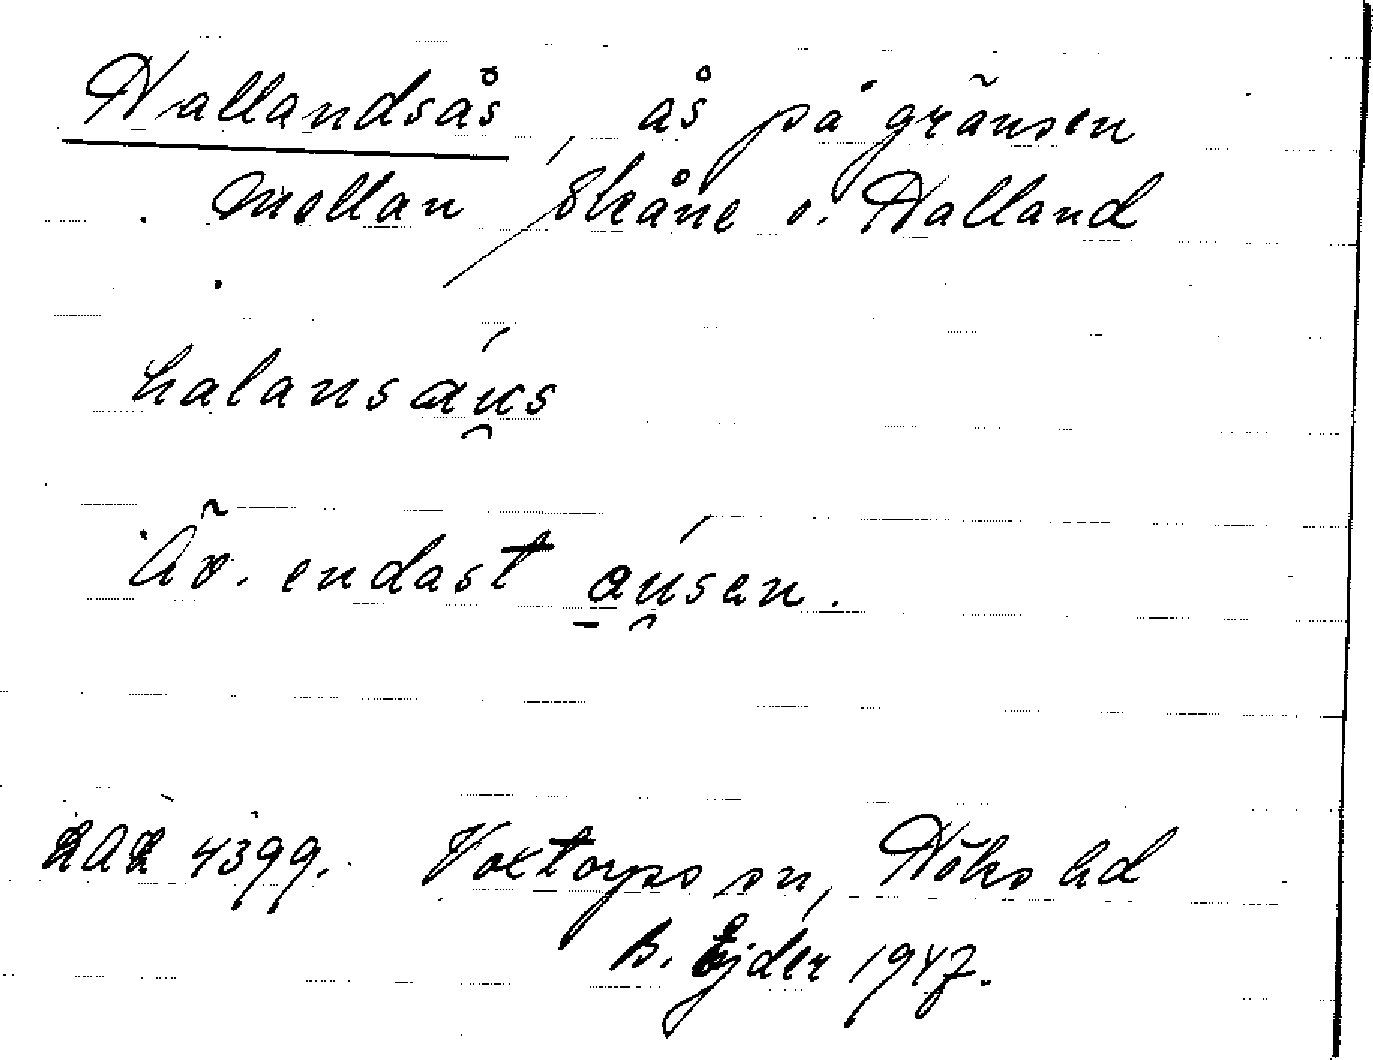 Hallandsås, ås på gränsen
mellan Skåne o. Halland
halansáu̯s
Äv. endast a̱ú̯san.
LAL 4399. Voxtorps sn, Höks hd
B. Ejder 1947.